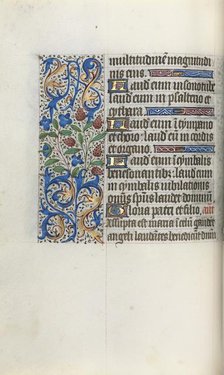 multitudinem magnitudi
nis eius.
Laudate eum in sono tube
laudate eum in psalterio et
cythara.
Laudate eum in tympano
et choro laudate eum in cordis
et organo.
Laudate eum in cymbalis
benesonantibus laudate eum
in cymbalis iubilationis
omnis spiritus laudet dominum.
Gloria patri et filio.
Assumpta est maria in celum gaudent
angeli laudantes benedicunt dnm